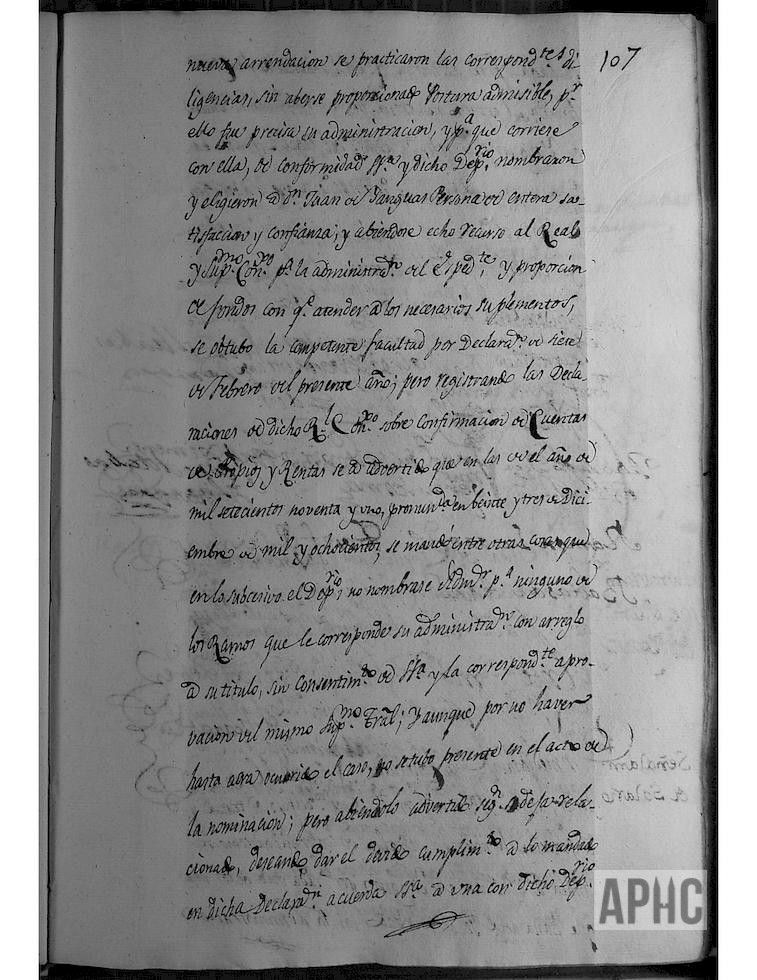 107
nueva arrendacion se practicaron las correspond.tes di-
ligencias, sin aberse proporcionado Postura admisible, p.r
ello fue precisa su administracion, y p.a que corriese
con ella, de conformidad Sª y dicho Dep.rio nombraron
y eligieron a d.n Juan de Yanguas Persona de entera sa-
tisfacion y confianza; y abiendose echo recurso al Real
y Sup.mo Con.xo p.a la administra.on del Exped.te, y proporcion
de fondos con q.e atender a los necesarios suplementos,
se obtubo la competente facultad por Declara.on de siete
de Febrero del presente año; pero registrando las Decla-
raciones de dicho R.l Con.xo sobre Confirmacion de Cuentas
de Propios y Rentas se a advertido que en las de el año de
mil setecientos noventa y uno, pronun.da en beinte y tres de Dici-
embre de mil y ochocientos, se mandó entre otras cosas que
en lo subcesivo el Dep.rio, no nombrase Adm.or p.a ninguno de
los Ramos que le corresponde su administra.on con arreglo
a su titulo, sin Consentim.to de Sª y la correspond.te apro-
vacion del mismo Sup.mo Tral; y aunque por no haver
hasta aora ocurrido el caso, no se tubo presente en el acto de
la nominacion; pero abiendolo advertido seg.n deja rela-
cionado, deseando dar el devido cumplim.to a lo mandado
en dicha Declara.on acuerda Sª a una con dicho Dep.rio
Señalam
de Salario
APHC